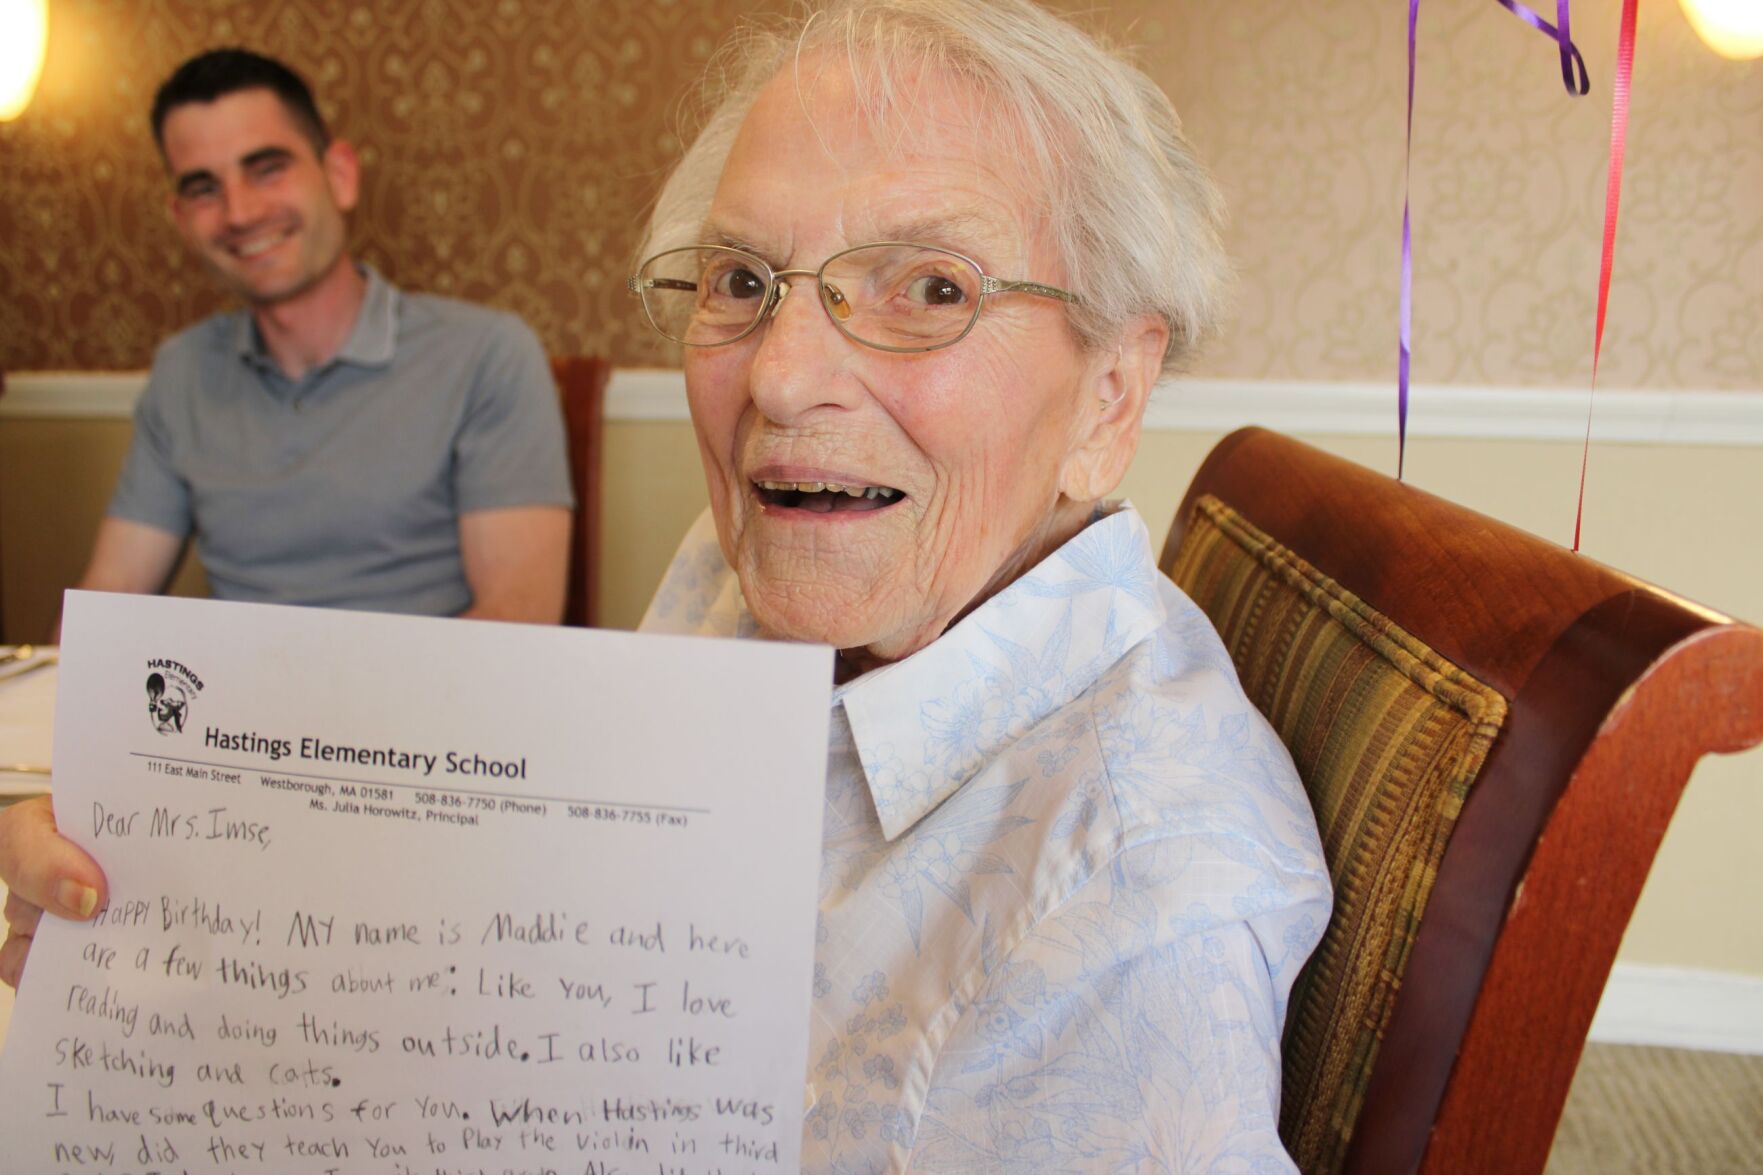 HASTINGS
Elementary
Hastings Elementary School
111 East Main Street Westborough, MA 01581 508-836-7750 (Phone) 508-836-7755 (Fax)
Ms. Julia Horowitz, Principal
Dear Mrs. Imse,
Happy Birthday! My name is Maddie and here
are a few things about me: Like you, I love
reading and doing things outside. I also like
sketching and cats.
I have some questions for you. When Hastings was
new, did they teach you to play the violin in third